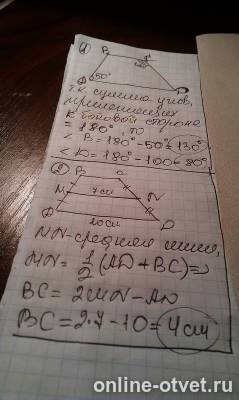 ①
B
50°
D
Т.К. сумма углов,
прилежащих
к боковой стороне
= 180°, то
∠B = 180° - 50° = 130°
= 180° - 100 = 80°
②
B C
M 7см N
10см D
MN - средняя линия,
MN = 1/2 (AD + BC) =>
BC = 2MN - AD
BC = 2·7 - 10 = 4см
online-otvet.ru